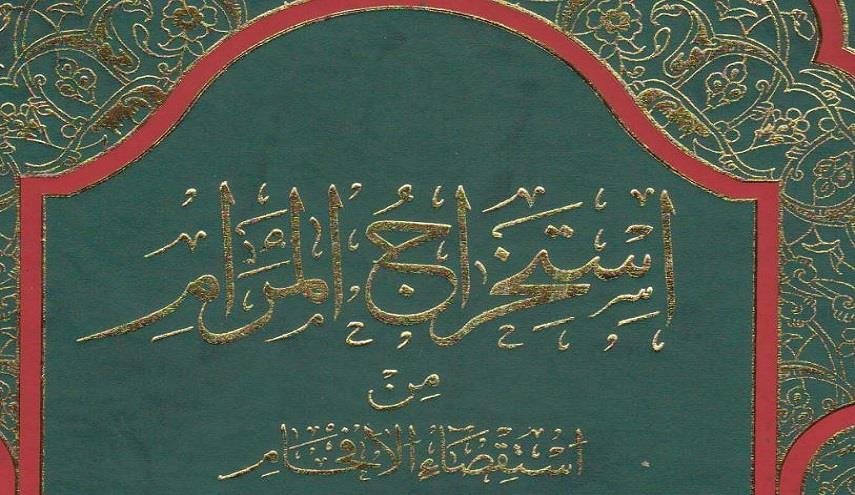 استخراج المرام
من
استقصاء الإفحام